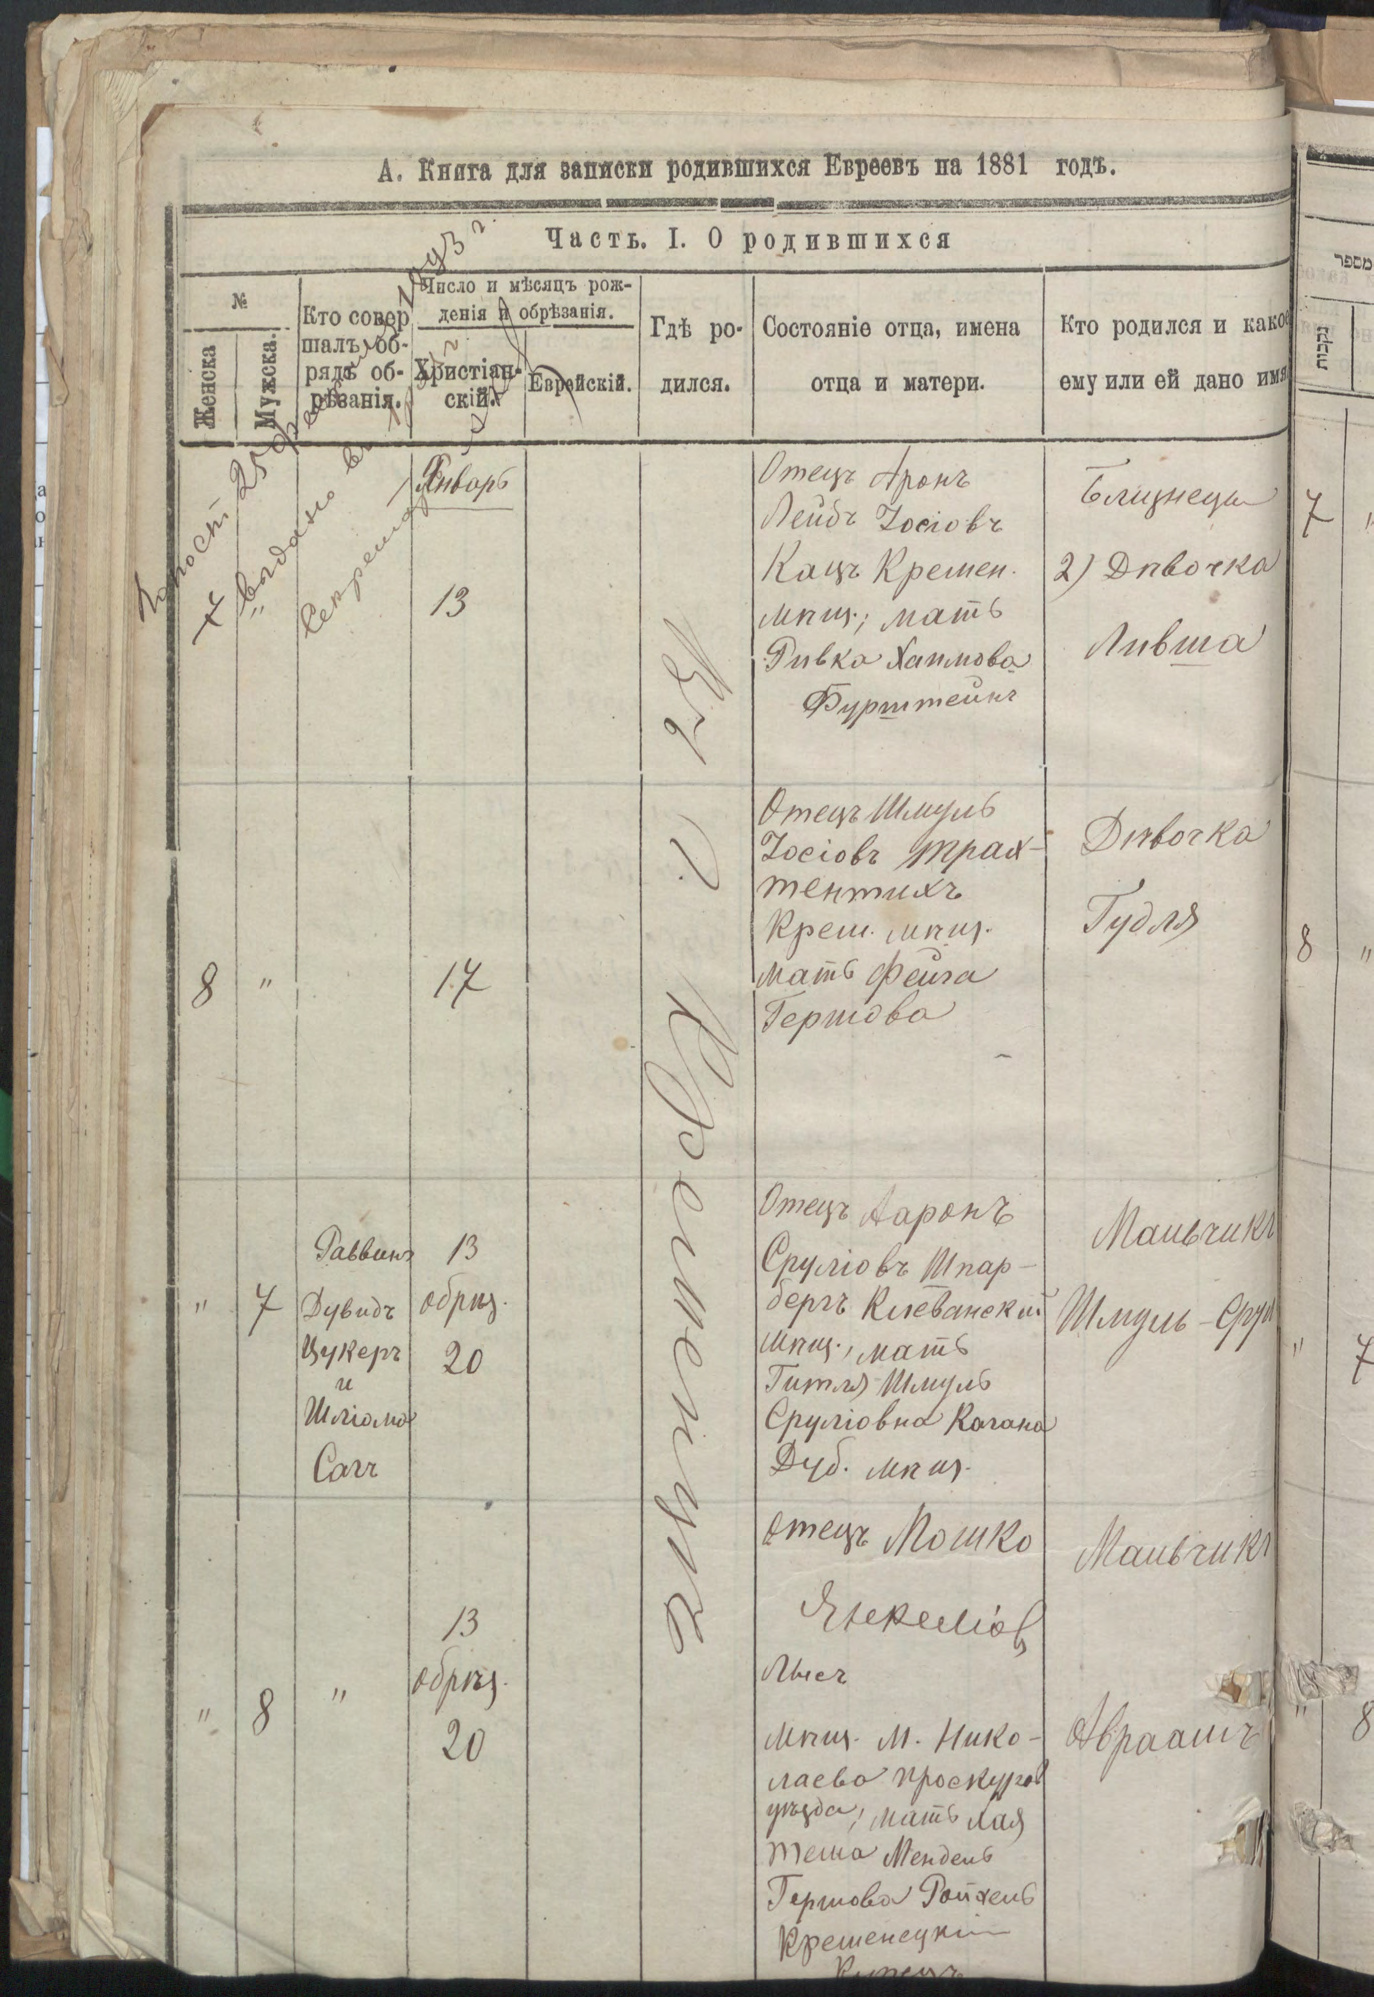 А. Книга для записки родившихся Евреевъ на 1881 годъ.
Часть. I. О родившихся
№
Женска
Мужска.
Кто совер
шалъ об-
рядъ об-
рѣзанія.
Число и мѣсяцъ рож-
денія и обрѣзанія.
Христіан-
скій.
Еврейскій.
Гдѣ ро-
дился.
Состояніе отца, имена
отца и матери.
Кто родился и какое
ему или ей дано имя
выдано
Секретар
въ г. Кременцѣ
7 "
Январь
13
Отецъ Аронъ
Лейбъ Іосіовъ
Кацъ Кремен.
мѣщ.; мать
Ривка Хаимова
Бурштейнъ
Близнецы
2) Дѣвочка
Ливша
8 "
17
Отецъ Шмуль
Іосіовъ Трах-
тентихъ
Крем. мѣщ.
мать Фейга
Гершова
Дѣвочка
Гудля
" 7
Раввинъ
Дувидъ
Цукеръ
и
Шліома
Сагъ
13
обрѣз.
20
Отецъ Ааронъ
Сруліовъ Шпар-
бергъ Клеванскій
мѣщ., мать
Гитля Шмуль
Сруліовна Кагана
Дуб. мѣщ.
Мальчикъ
Шмуль-Срул
" 8
"
13
обрѣз.
20
Отецъ Мошко
Янкеліов
Лысъ
мѣщ. м. Нико-
лаева Проскуров
уѣзда, мать Хая
Тема Мендель
Гершова Ройхель
Кременецкій
Купецъ
Мальчикъ
Авраамъ
מספר
נקבות
7 "
8 "
" 7
" 8